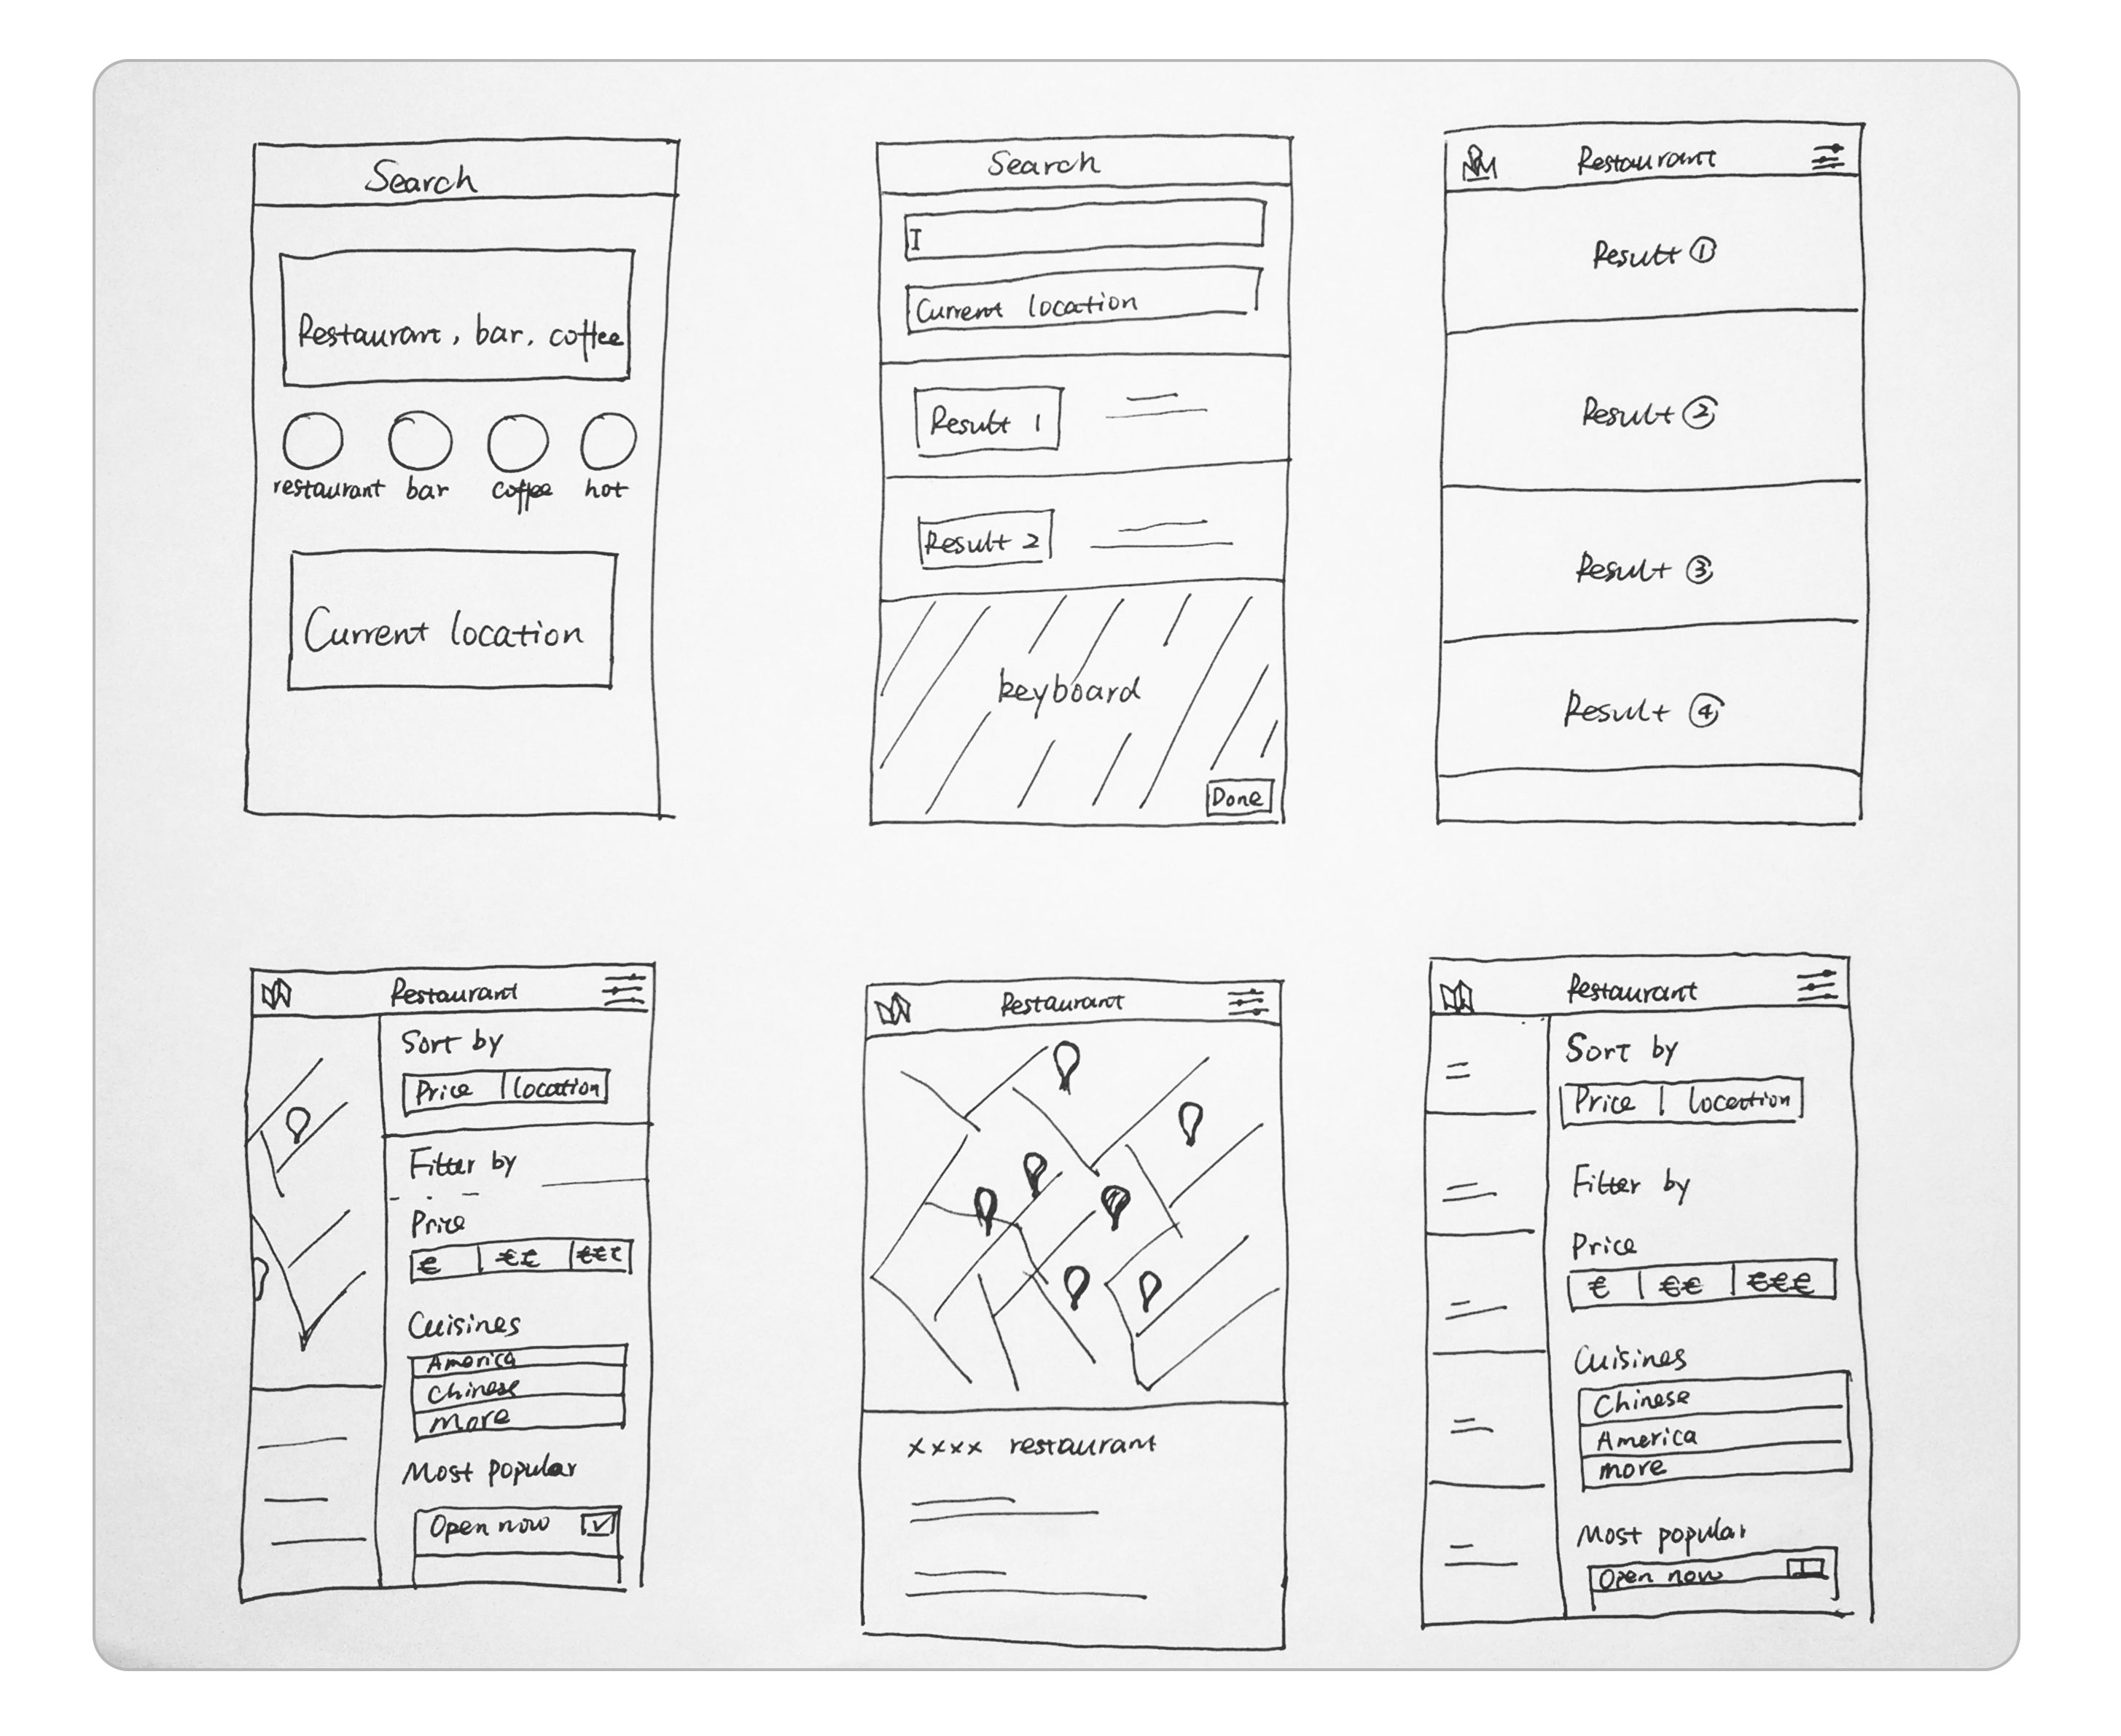 Search
Restaurant, bar, coffee
restaurant bar coffee hot
Current location
Search
Current location
Result 1
Result 2
keyboard
Done
Restaurant
Result ①
Result ②
Result ③
Result ④
Restaurant
Sort by
Price location
Filter by
Price
€ €€ €€€
Cuisines
America
Chinese
more
Most popular
Open now
Restaurant
xxxx restaurant
Restaurant
Sort by
Price location
Filter by
Price
€ €€ €€€
Cuisines
Chinese
America
more
Most popular
Open now